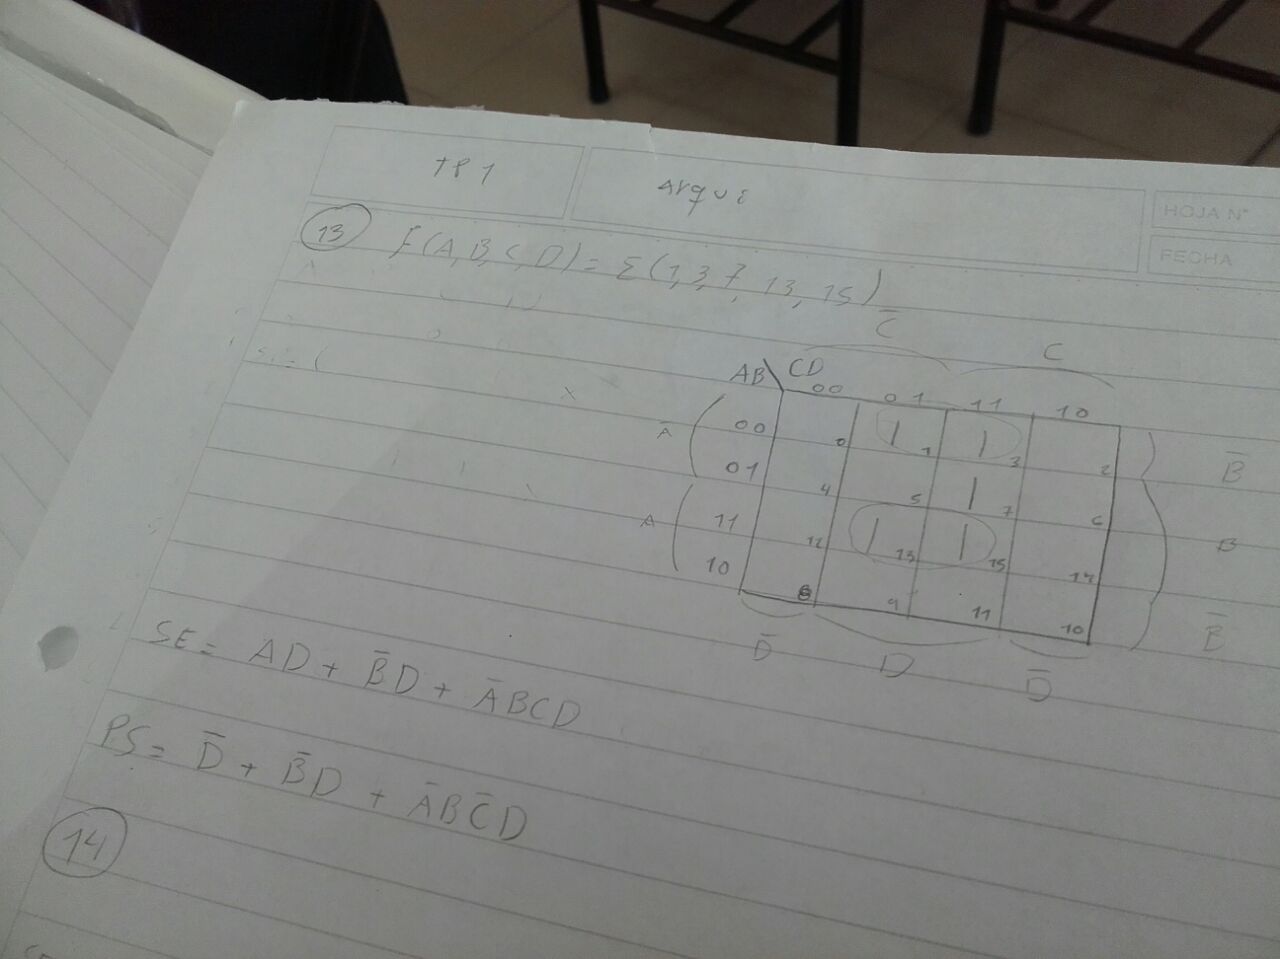 TP1
Arqui
HOJA N°
FECHA
13
F(A,B,C,D) = Σ(1,3,7,13,15)
C̅ C
AB\CD
00 01 11 10
A̅ 00 1 1 B̅
0 1 3 2
01 1
4 5 7 6
A 11 1 1 B
12 13 15 14
10 B̅
8 9 11 10
D̅ D D̅
SE = AD + B̅D + A̅BCD
PS = D̅ + B̅D + A̅BC̅D
14